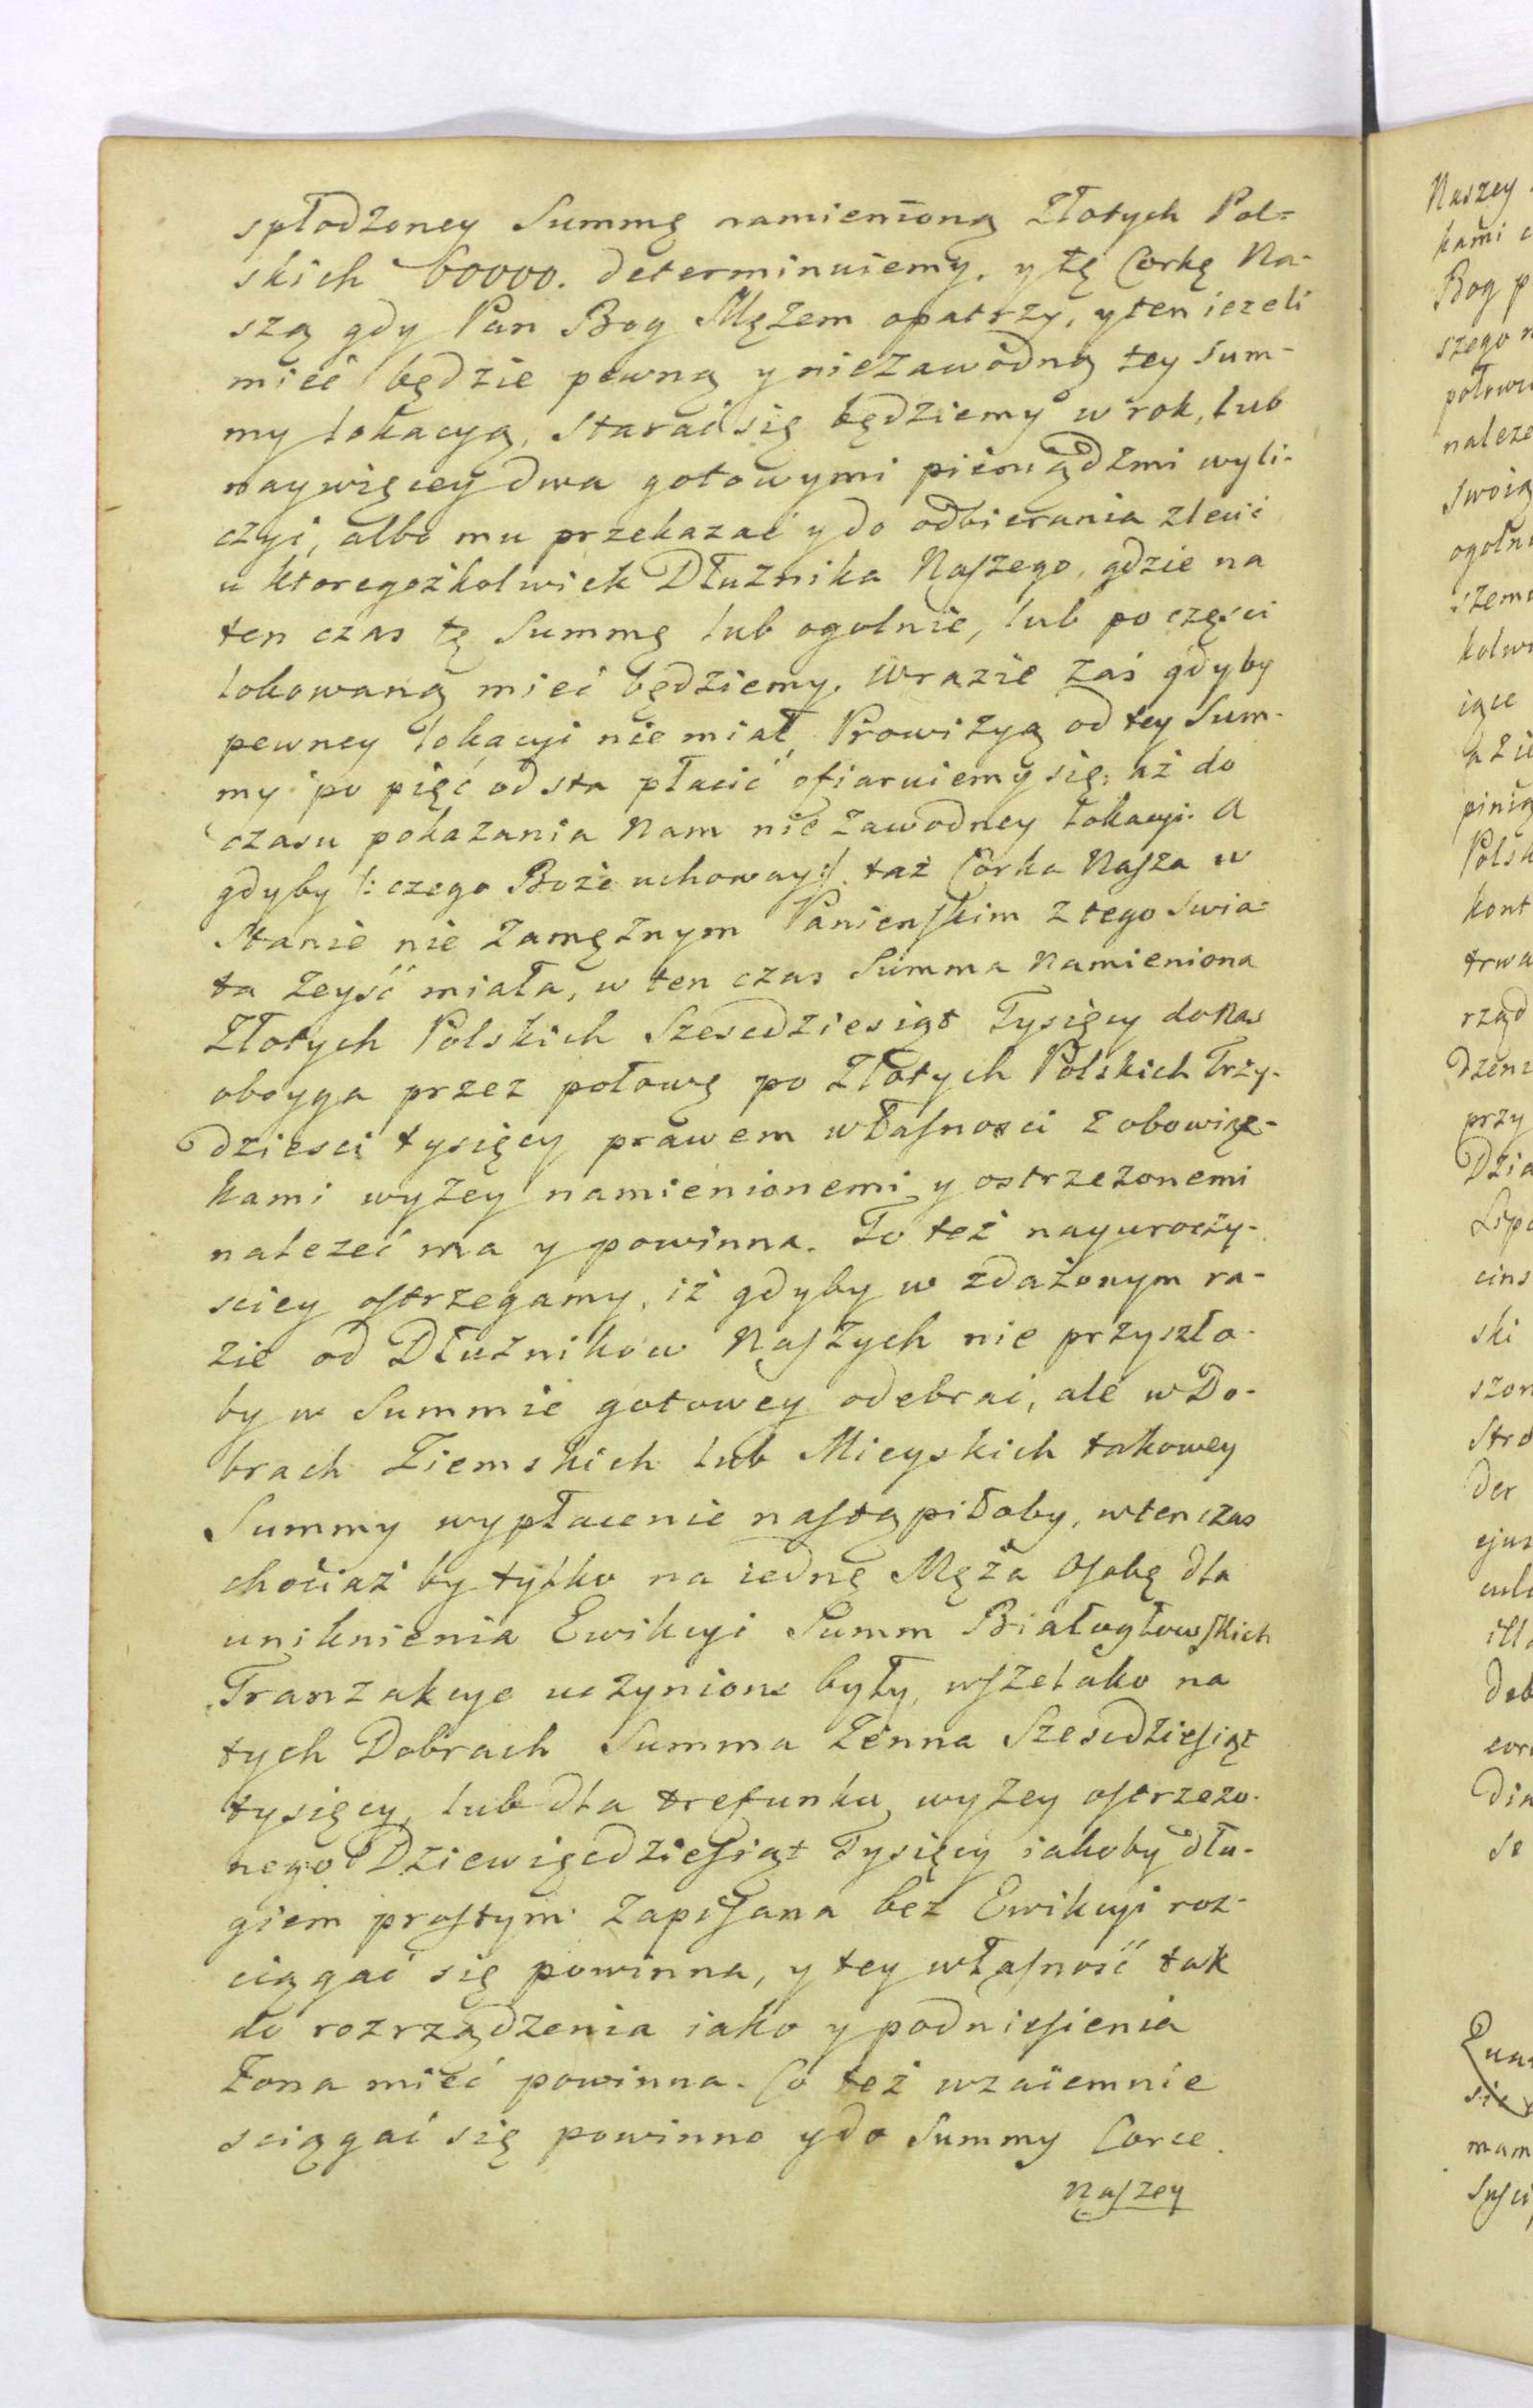 spłodzoney Summę namienioną Złotych Pol=
skich 60000. determinuiemy. y tę Corkę Na-
szą gdy Pan Bog Mężem opatrzy, y ten iezeli
mieć będzie pewną y niezawodną tey Sum-
my lokacyą, starać się będziemy w rok, lub
naywięcey dwa gotowymi pieniądzmi wyli-
czyć, albo mu przekazać y do odbierania zlecić
u ktoregożkolwiek Dłużnika Naszego, gdzie na
ten czas tę Summę lub ogolnie, lub po części
lokowaną mieć będziemy. W razie zaś gdyby
pewney lokacyi nie miał, Prowizyą od tey Sum-
my po pięć od sta płacić ofiaruiemy się, aż do
czasu pokazania Nam nie zawodney Lokacyi. A
gdyby /: czego Boże uchoway :/ taż Corka Nasza w
Stanie nie zamężnym Panienskim z tego swia-
ta zeyść miała, w ten czas Summa Namieniona
Złotych Polskich Szescdziesiąt Tysięcy do Nas
oboyga przez połowę po Złotych Polskich Trzy-
dziesci tysięcy prawem własnosci z obowiąz-
kami wyżey namienionemi y ostrzezonemi
należeć ma y powinna. To też nayuroczy-
sciey ostrzegamy, iż gdyby w zdażonym ra-
zie od Dłużnikow Naszych nie przyszło-
by w Summie gotowey odebrać, ale w Do-
brach Ziemskich lub Mieyskich takowey
Summy wypłacenie nastąpiłoby, w ten czas
chociaż by tylko na iednę Męża Osobę dla
uniknienia Ewikcyi Summ Białogłowskich
Tranzakcye uczynione były, wszelako na
tych Dobrach Summa Żenna Szescdziesiąt
tysięcy, lub dla trefunku wyżey ostrzezo-
nego Dziewięcdziesiąt Tysięcy iakoby dłu-
giem prostym zapisana bez Ewikcyi roz-
ciągać się powinna, y tey własność tak
do rozrządzenia iako y podniesienia
Żona mieć powinna. Co też wzaiemnie
sciągać się powinno y do Summy Corce
Naszey